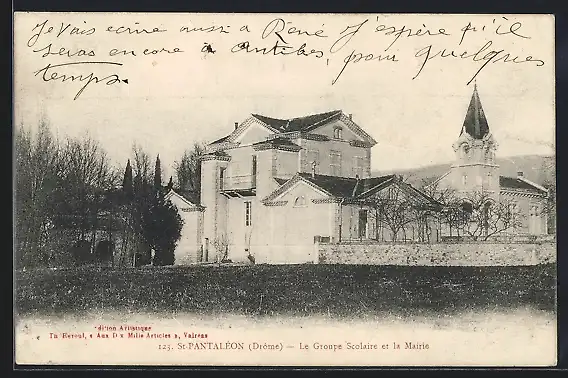 Je vais écrire aussi à René J'espère qu'il
sera encore à antibes, pour quelques
temps.
Edition Artistique
Th Eyroul, « Aux Dx Mille Articles », Valréas
123. St-PANTALÉON (Drôme) — Le Groupe Scolaire et la Mairie